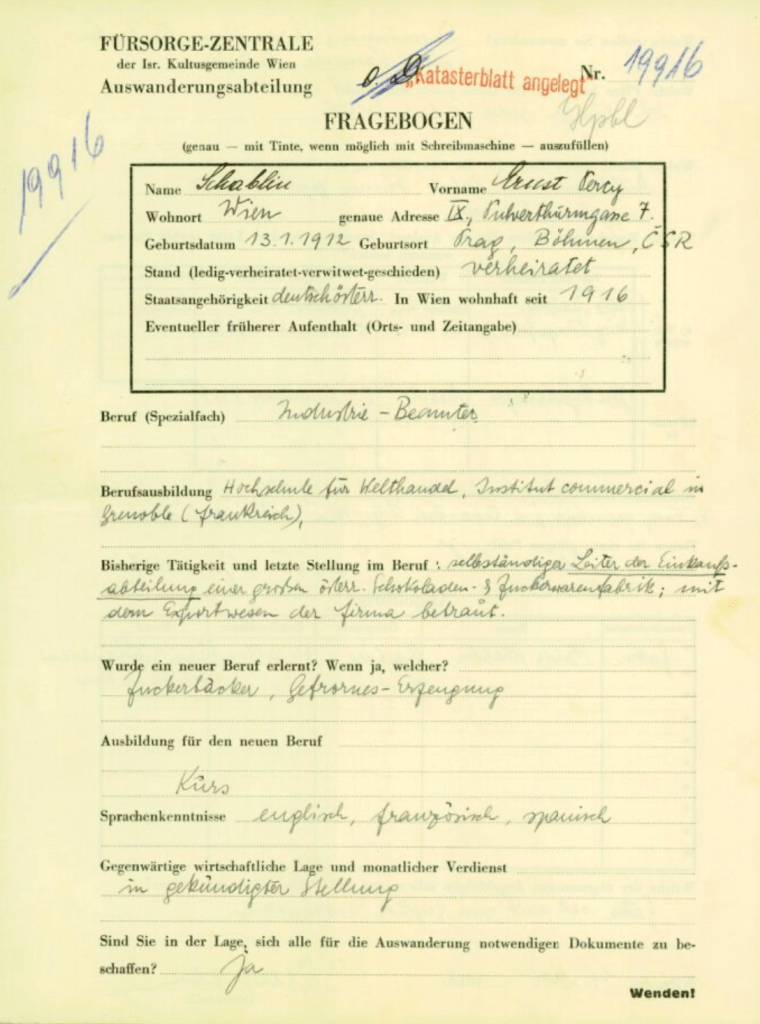 FÜRSORGE-ZENTRALE
der Isr. Kultusgemeinde Wien
Auswanderungsabteilung
"Katasterblatt angelegt"
Nr. 19916
19916
FRAGEBOGEN
(genau — mit Tinte, wenn möglich mit Schreibmaschine — auszufüllen)
Name Schablin Vorname Ernst Percy
Wohnort Wien genaue Adresse IX., Pulverthurmgasse 7.
Geburtsdatum 13.1.1912 Geburtsort Prag, Böhmen, ČSR
Stand (ledig-verheiratet-verwitwet-geschieden) verheiratet
Staatsangehörigkeit deutschösterr. In Wien wohnhaft seit 1916
Eventueller früherer Aufenthalt (Orts- und Zeitangabe)
Beruf (Spezialfach) Industrie-Beamter
Berufsausbildung Hochschule für Welthandel, Institut commercial in
Grenoble (Frankreich),
Bisherige Tätigkeit und letzte Stellung im Beruf: selbständiger Leiter der Einkaufs-
abteilung einer großen österr. Schokoladen- & Zuckerwarenfabrik; mit
dem Exportwesen der Firma betraut.
Wurde ein neuer Beruf erlernt? Wenn ja, welcher?
Zuckerbäcker, Gefrornes-Erzeugung
Ausbildung für den neuen Beruf
Kurs
Sprachenkenntnisse englisch, französisch, spanisch
Gegenwärtige wirtschaftliche Lage und monatlicher Verdienst
in gekündigter Stellung
Sind Sie in der Lage, sich alle für die Auswanderung notwendigen Dokumente zu be-
schaffen? Ja
Wenden!